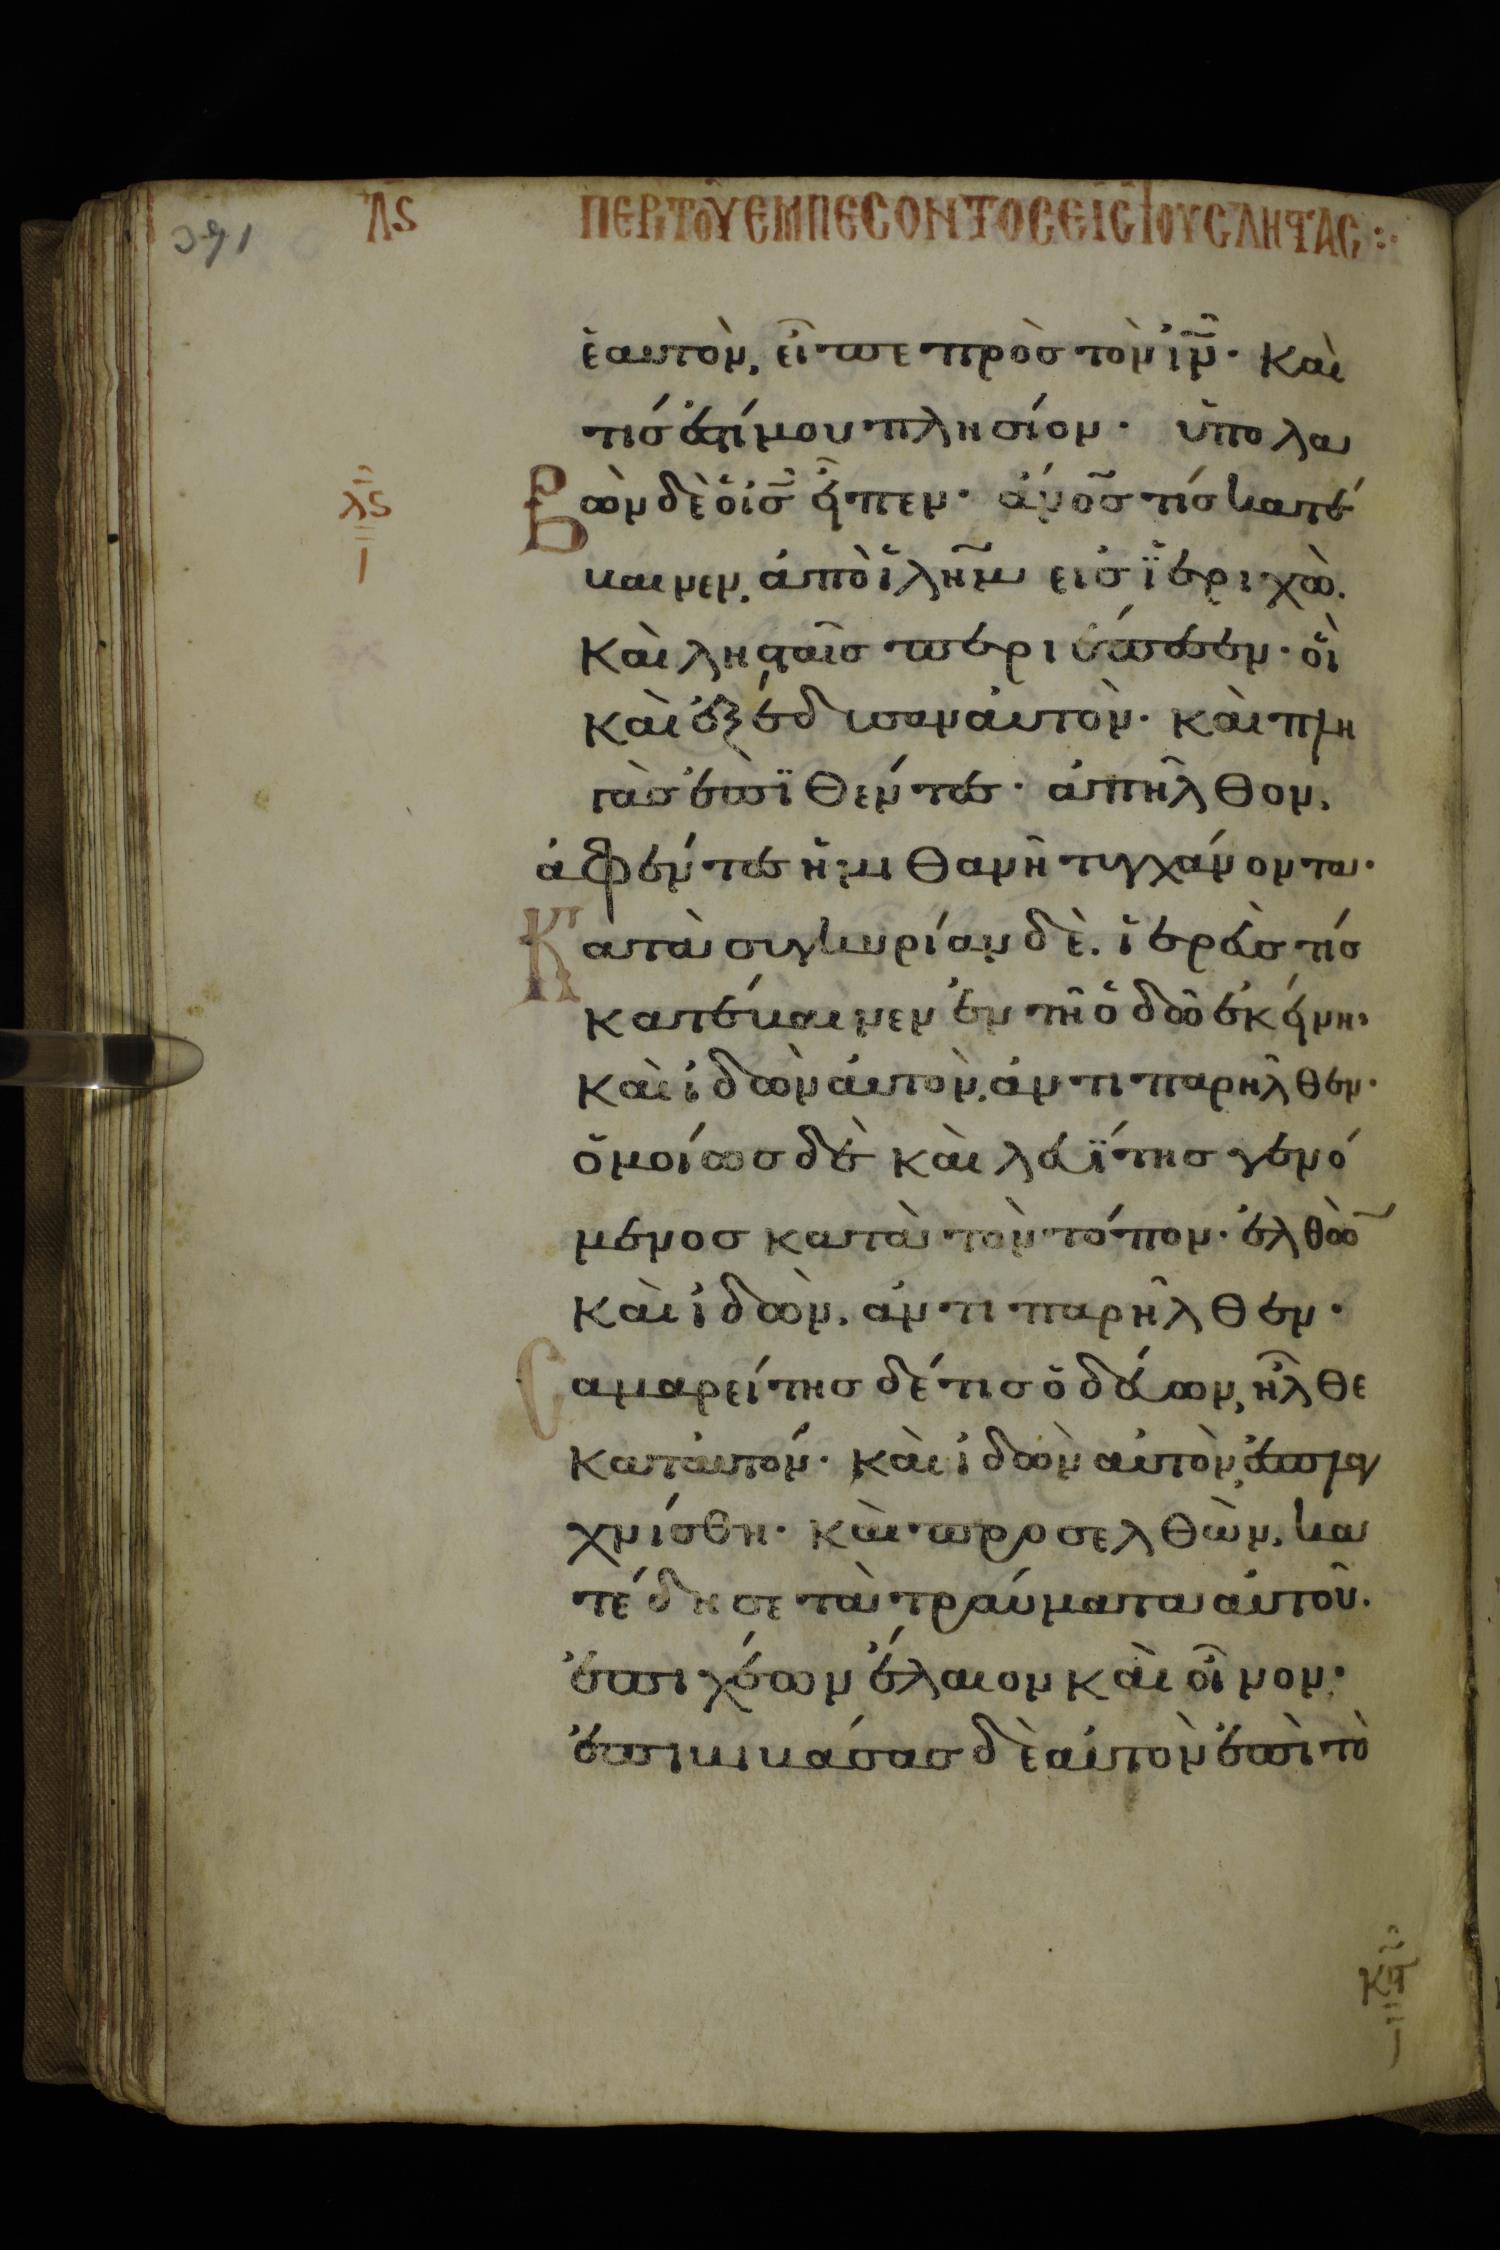 ΛϚ ΠΕΡῚ ΤΟΥ ΕΜΠΕΣΟΝΤΟΣ ΕΙΣ ΤΟΥΣ ΛΗΣΤΑΣ :·
ἑαυτὸν, εἶπε πρὸς τὸν ιν̅· καὶ
τίς ἐστί μου πλησίον· ὑπολα
βὼν δὲ ὁ ις̅ εἶπεν· ἄνος̅ τίς κατέ
λϛ
Ι
καινεν, ἀπὸ ιλημ̅ εἰς ἱεριχὼ.
καὶ λησταῖς περιέπεσεν· οἳ
καὶ ἐξέδυσαν αὐτὸν· καὶ πλη
γὰς ἐπϊθέντες· ἀπῆλθον,
ἀφέντες ἡμιθανῆ τυγχάνοντα·
Κατὰ συγκυρίαν δὲ. ἱερεὺς τίς
κατέκαινεν ἐν τῆ ὁδῶ ἐκείνη,
καὶ ἰδὼν αὐτὸν, ἀντιπαρῆλθεν·
ὁμοίως δὲ καὶ λευΐτης γενό
μενος κατὰ τὸν τόπον· ἐλθὼ̅
καὶ ἰδὼν, ἀντιπαρῆλθεν·
Σαμαρείτης δέ τις ὁδεύων, ἦλθε
κατ αὐτόν· καὶ ἰδὼν αὐτὸν, ἐσπλαγ
χνίσθη· καὶ προσελθὼν, κα
τέδησε τὰ τραύματα αὐτοῦ.
ἐπιχέων ἔλαιον καὶ οἶνον·
ἐπικικάσας δὲ αὐτὸν ἐπὶ τὸ